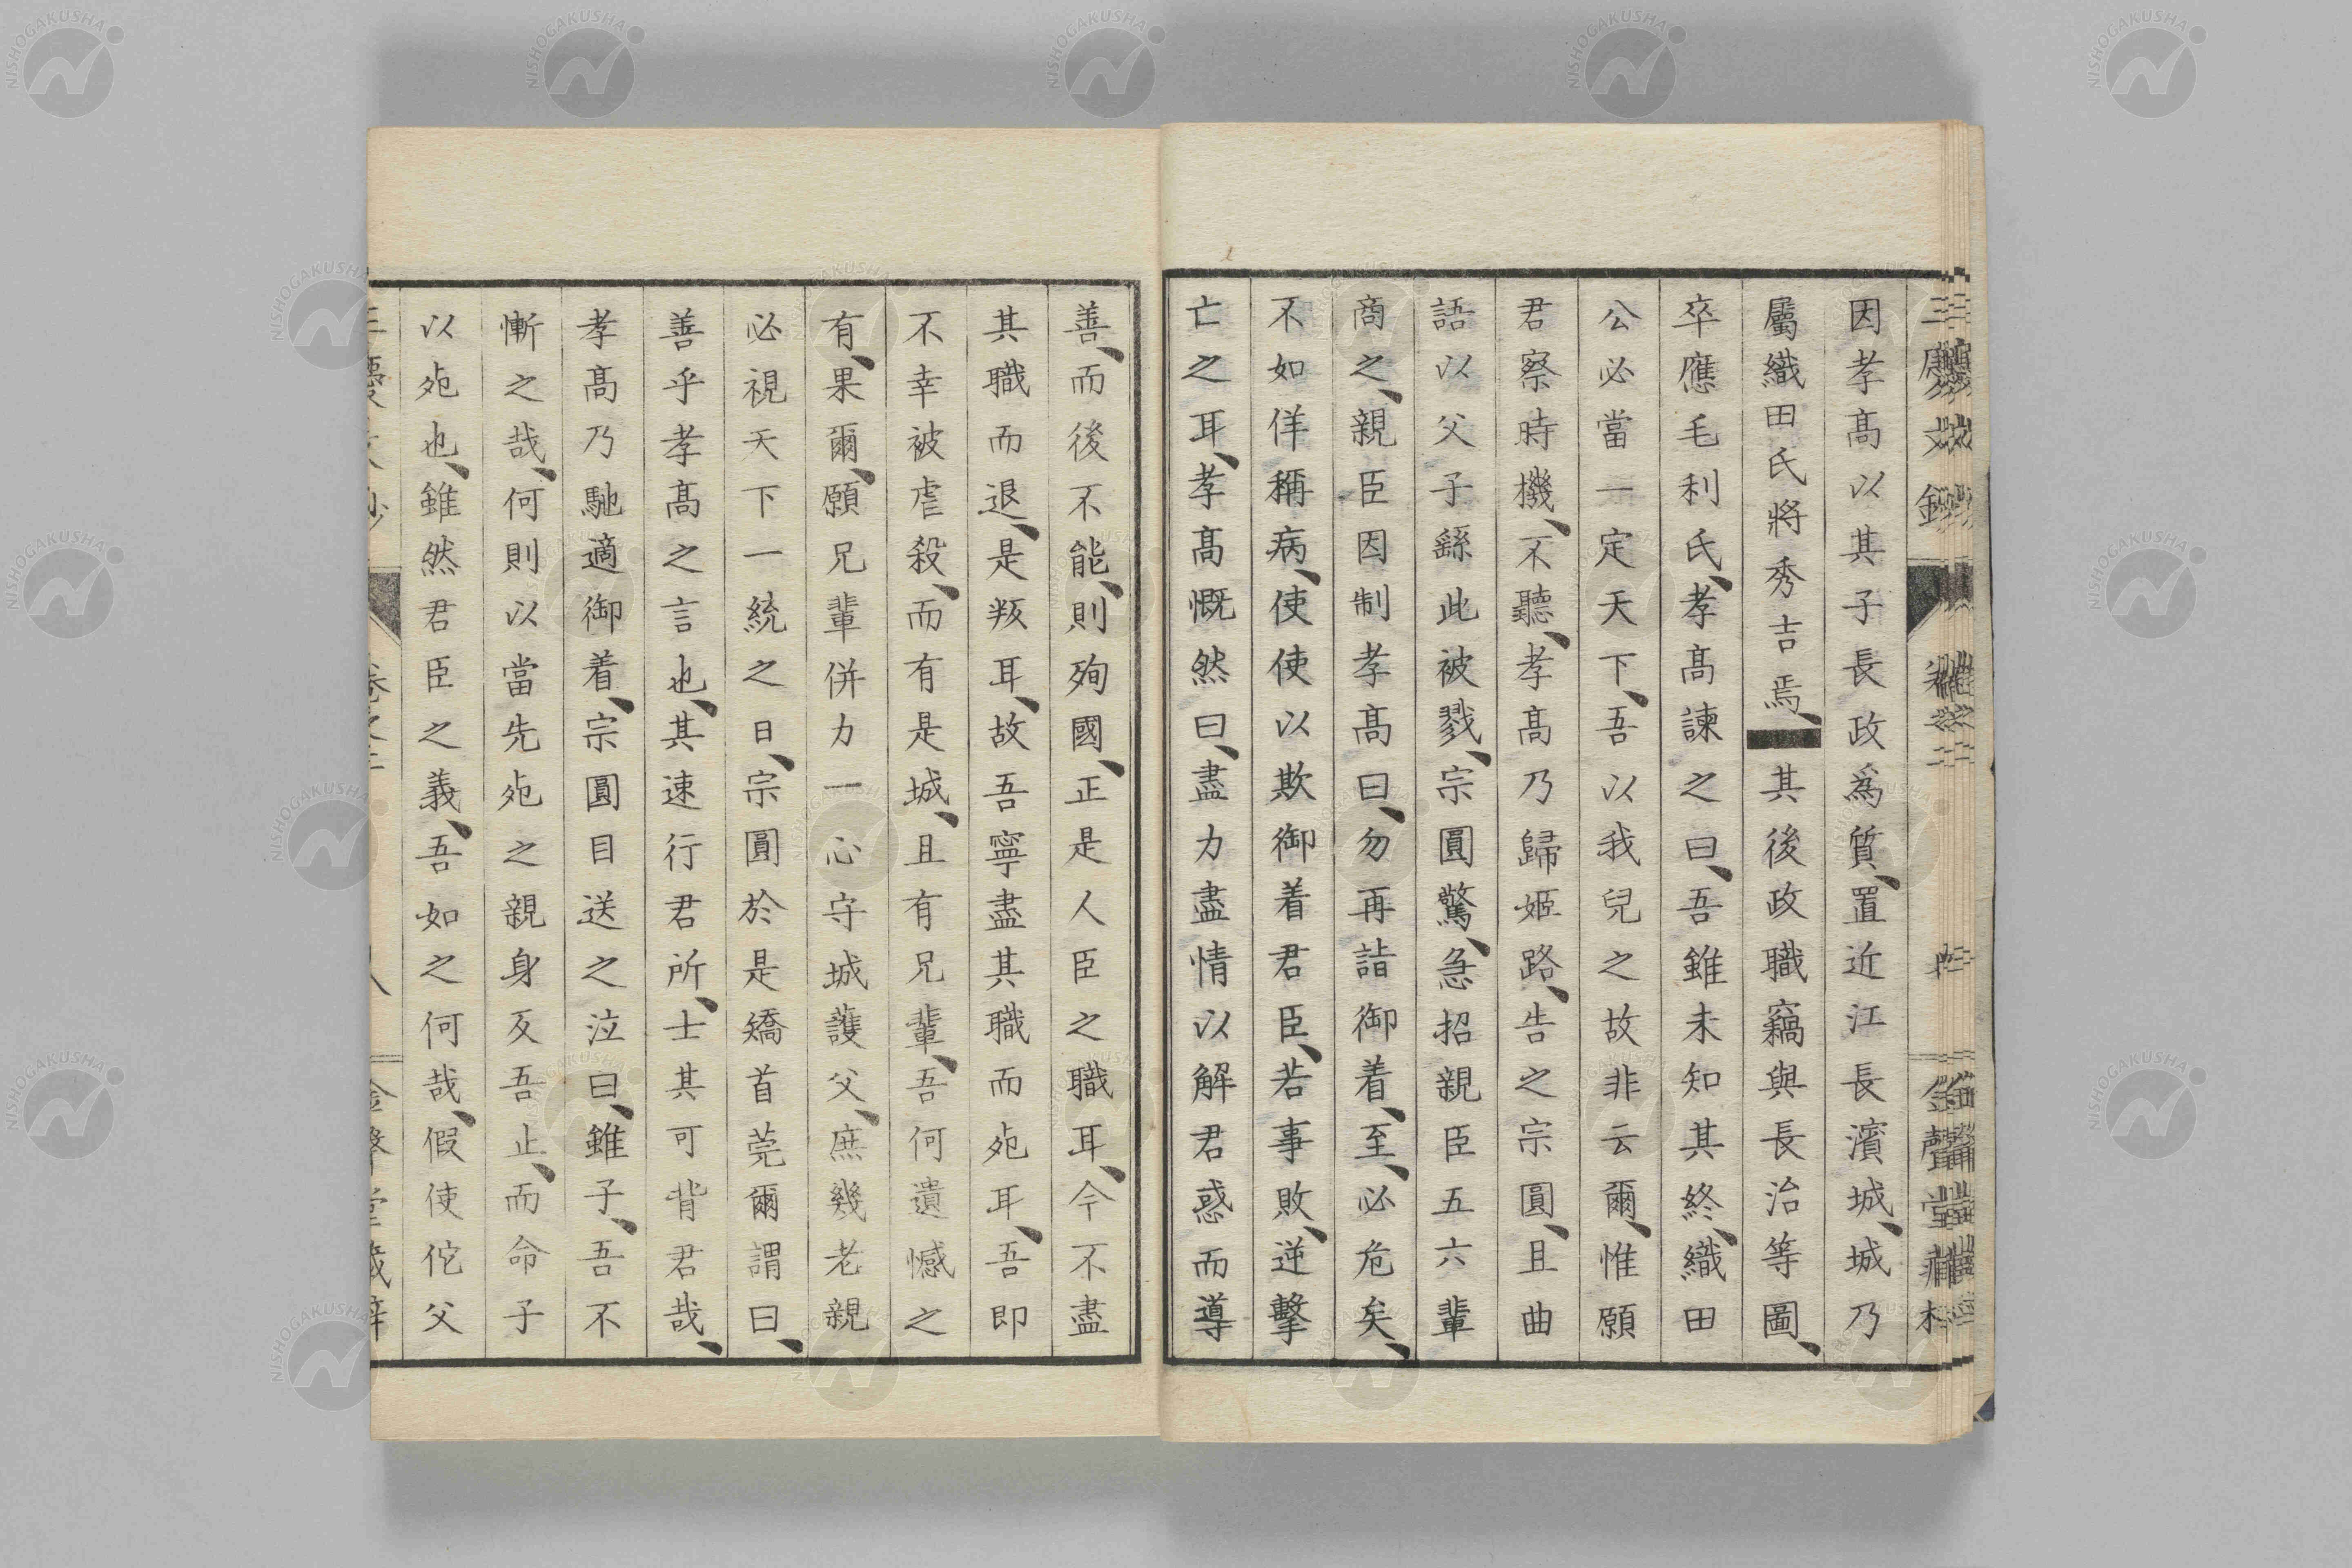 因孝髙以其子長政爲質、置近江長濱城、城乃
屬織田氏將秀吉焉、其後政職竊與長治等圖、
卒應毛利氏、孝髙諫之曰、吾雖未知其終、織田
公必當一定天下、吾以我兒之故非云爾、惟願
君察時機、不聽、孝髙乃歸姬路、告之宗圓、且曲
語以父子繇此被戮、宗圓驚、急招親臣五六輩
商之、親臣因制孝髙曰、勿再詣御着、至、必危矣、
不如佯稱病、使使以欺御着君臣、若事敗、逆擊
亡之耳、孝髙慨然曰、盡力盡情以解君惑而導
善、而後不能、則殉國、正是人臣之職耳、今不盡
其職而退、是叛耳、故吾寧盡其職而死耳、吾即
不幸被虐殺、而有是城、且有兄輩、吾何遺憾之
有、果爾、願兄輩併力一心守城護父、庶幾老親
必視天下一統之日、宗圓於是矯首莞爾謂曰、
善乎孝髙之言也、其速行君所、士其可背君哉、
孝髙乃馳適御着、宗圓目送之泣曰、雖子、吾不
慚之哉、何則以當先死之親身反吾止、而命子
以死也、雖然君臣之義、吾如之何哉、假使佗父
NISHOGAKUSHA